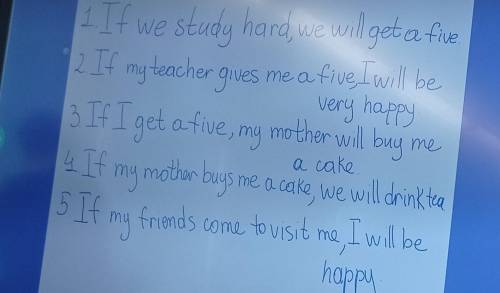 1. If we study hard, we will get a five.
2. If my teacher gives me a five, I will be
very happy
3. If I get a five, my mother will buy me
a cake.
4. If my mother buys me a cake, we will drink tea
5 If my friends come to visit me, I will be
happy.